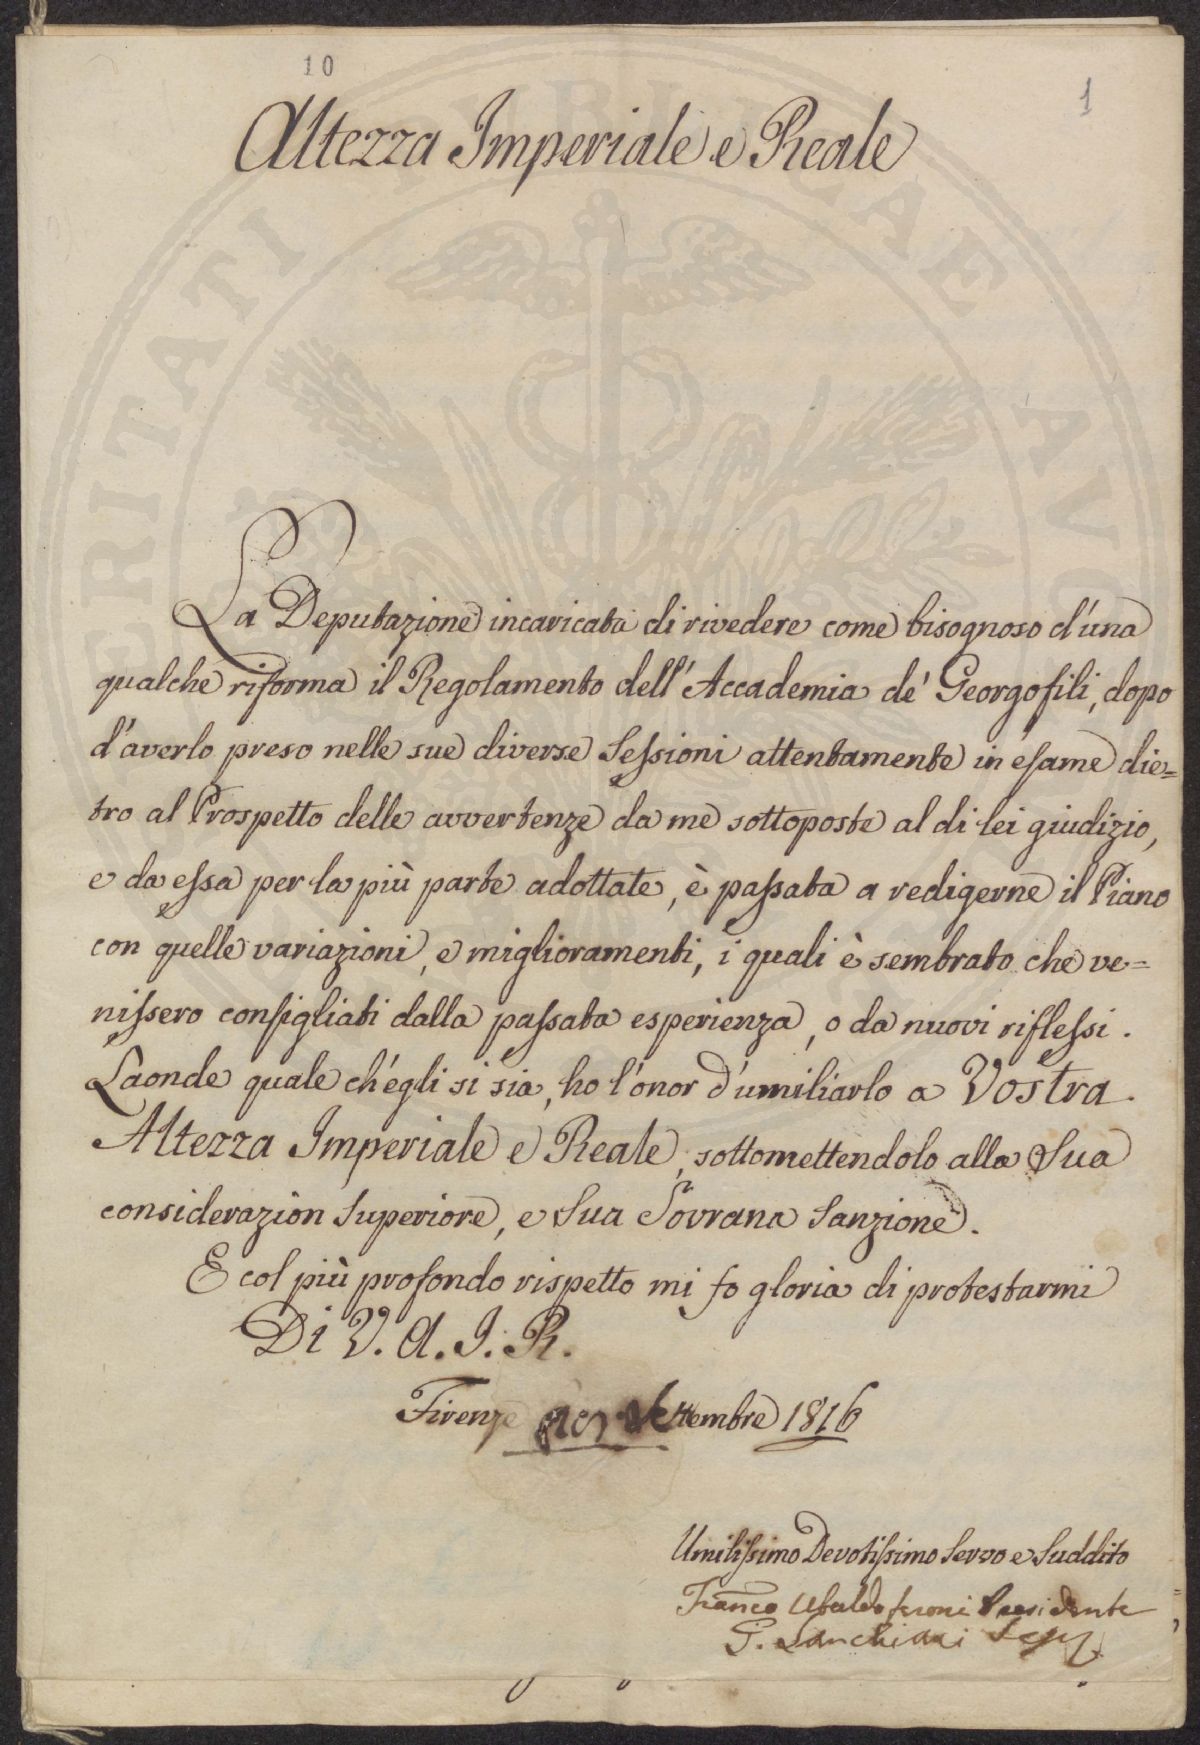 10
1
Altezza Imperiale e Reale
La Deputazione incaricata di rivedere come bisognoso d'una
qualche riforma il Regolamento dell'Accademia de' Georgofili, dopo
d'averlo preso nelle sue diverse Sessioni attentamente in esame die=
tro al Prospetto delle avvertenze da me sottoposte al di lei giudizio,
e da essa per la più parte adottate, è passata a redigerne il Piano
con quelle variazioni, e miglioramenti, i quali è sembrato che ve=
nissero consigliati dalla passata esperienza, o da nuovi riflessi.
Laonde quale ch'egli si sia, ho l'onor d'umiliarlo a Vostra
Altezza Imperiale e Reale, sottomettendolo alla Sua
considerazion Superiore, e Sua Sovrana Sanzione.
E col più profondo rispetto mi fo gloria di protestarmi
Di V. A. I. R.
Firenze Settembre 1816
Umilissimo Devotissimo Servo e Suddito
Franco Ubaldo feroni Presidente
G. Sarchiani Segr
RITATI PUBLICAE AVG